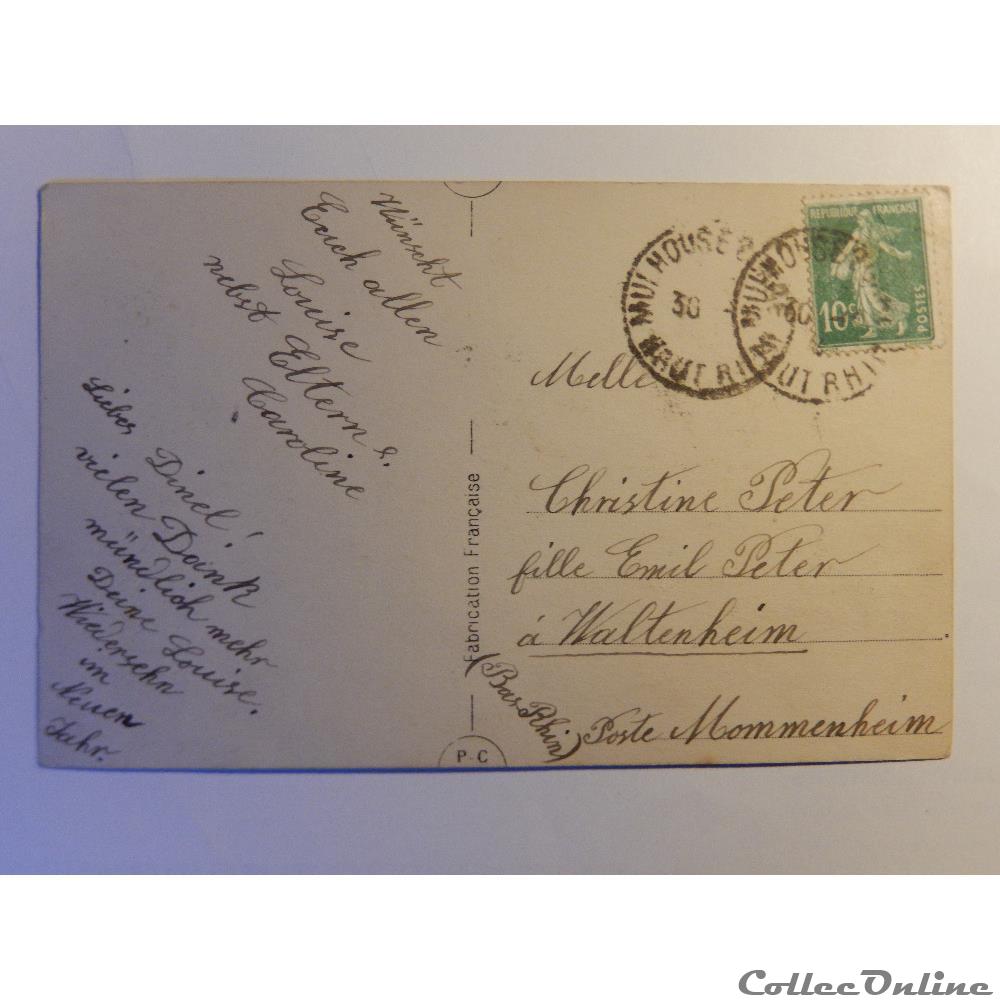 Wünscht
Euch allen
Louise
nebst Eltern &.
Caroline
Liebes Dinel!
vielen Dank
mündlich mehr
Deine Louise.
Wiedersehn
im
Neuen
Jahr.
Fabrication Française
P-C
MULHOUSE
30
HAUT RHIN
MULHOUSE
30
HAUT RHIN
REPUBLIQUE FRANÇAISE
10c
POSTES
Melle
Christine Peter
fille Emil Peter
á Waltenheim
(Bas Rhin)
Poste Mommenheim
CollecOnline